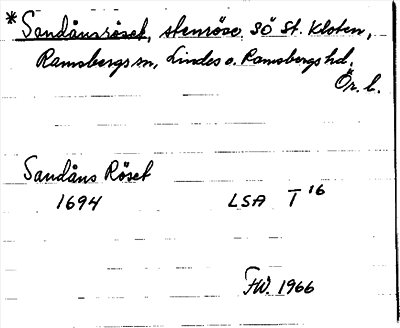 *Sandånsröset, stenröse SÖ St. Kloten,
Ramsbergs sn, Lindes o. Ramsbergs hd.
Ör. l.
Sandåns Röset
1694 LSA T 16
FW. 1966